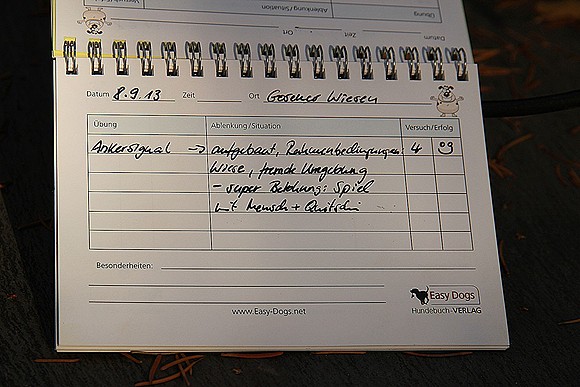 Übung
Ablenkung/Situation
Ort
Zeit
Datum
Datum 8.9.13 Zeit Ort Geseker Wiesen
Übung Ablenkung/Situation Versuch/Erfolg
Ankersignal → aufgebaut, Rahmenbedingungen: 4
Wiese, fremde Umgebung
- super Belohnung: Spiel
mit Mensch + Quitschi
Besonderheiten:
www.Easy-Dogs.net
Easy Dogs
Hundebuch-VERLAG